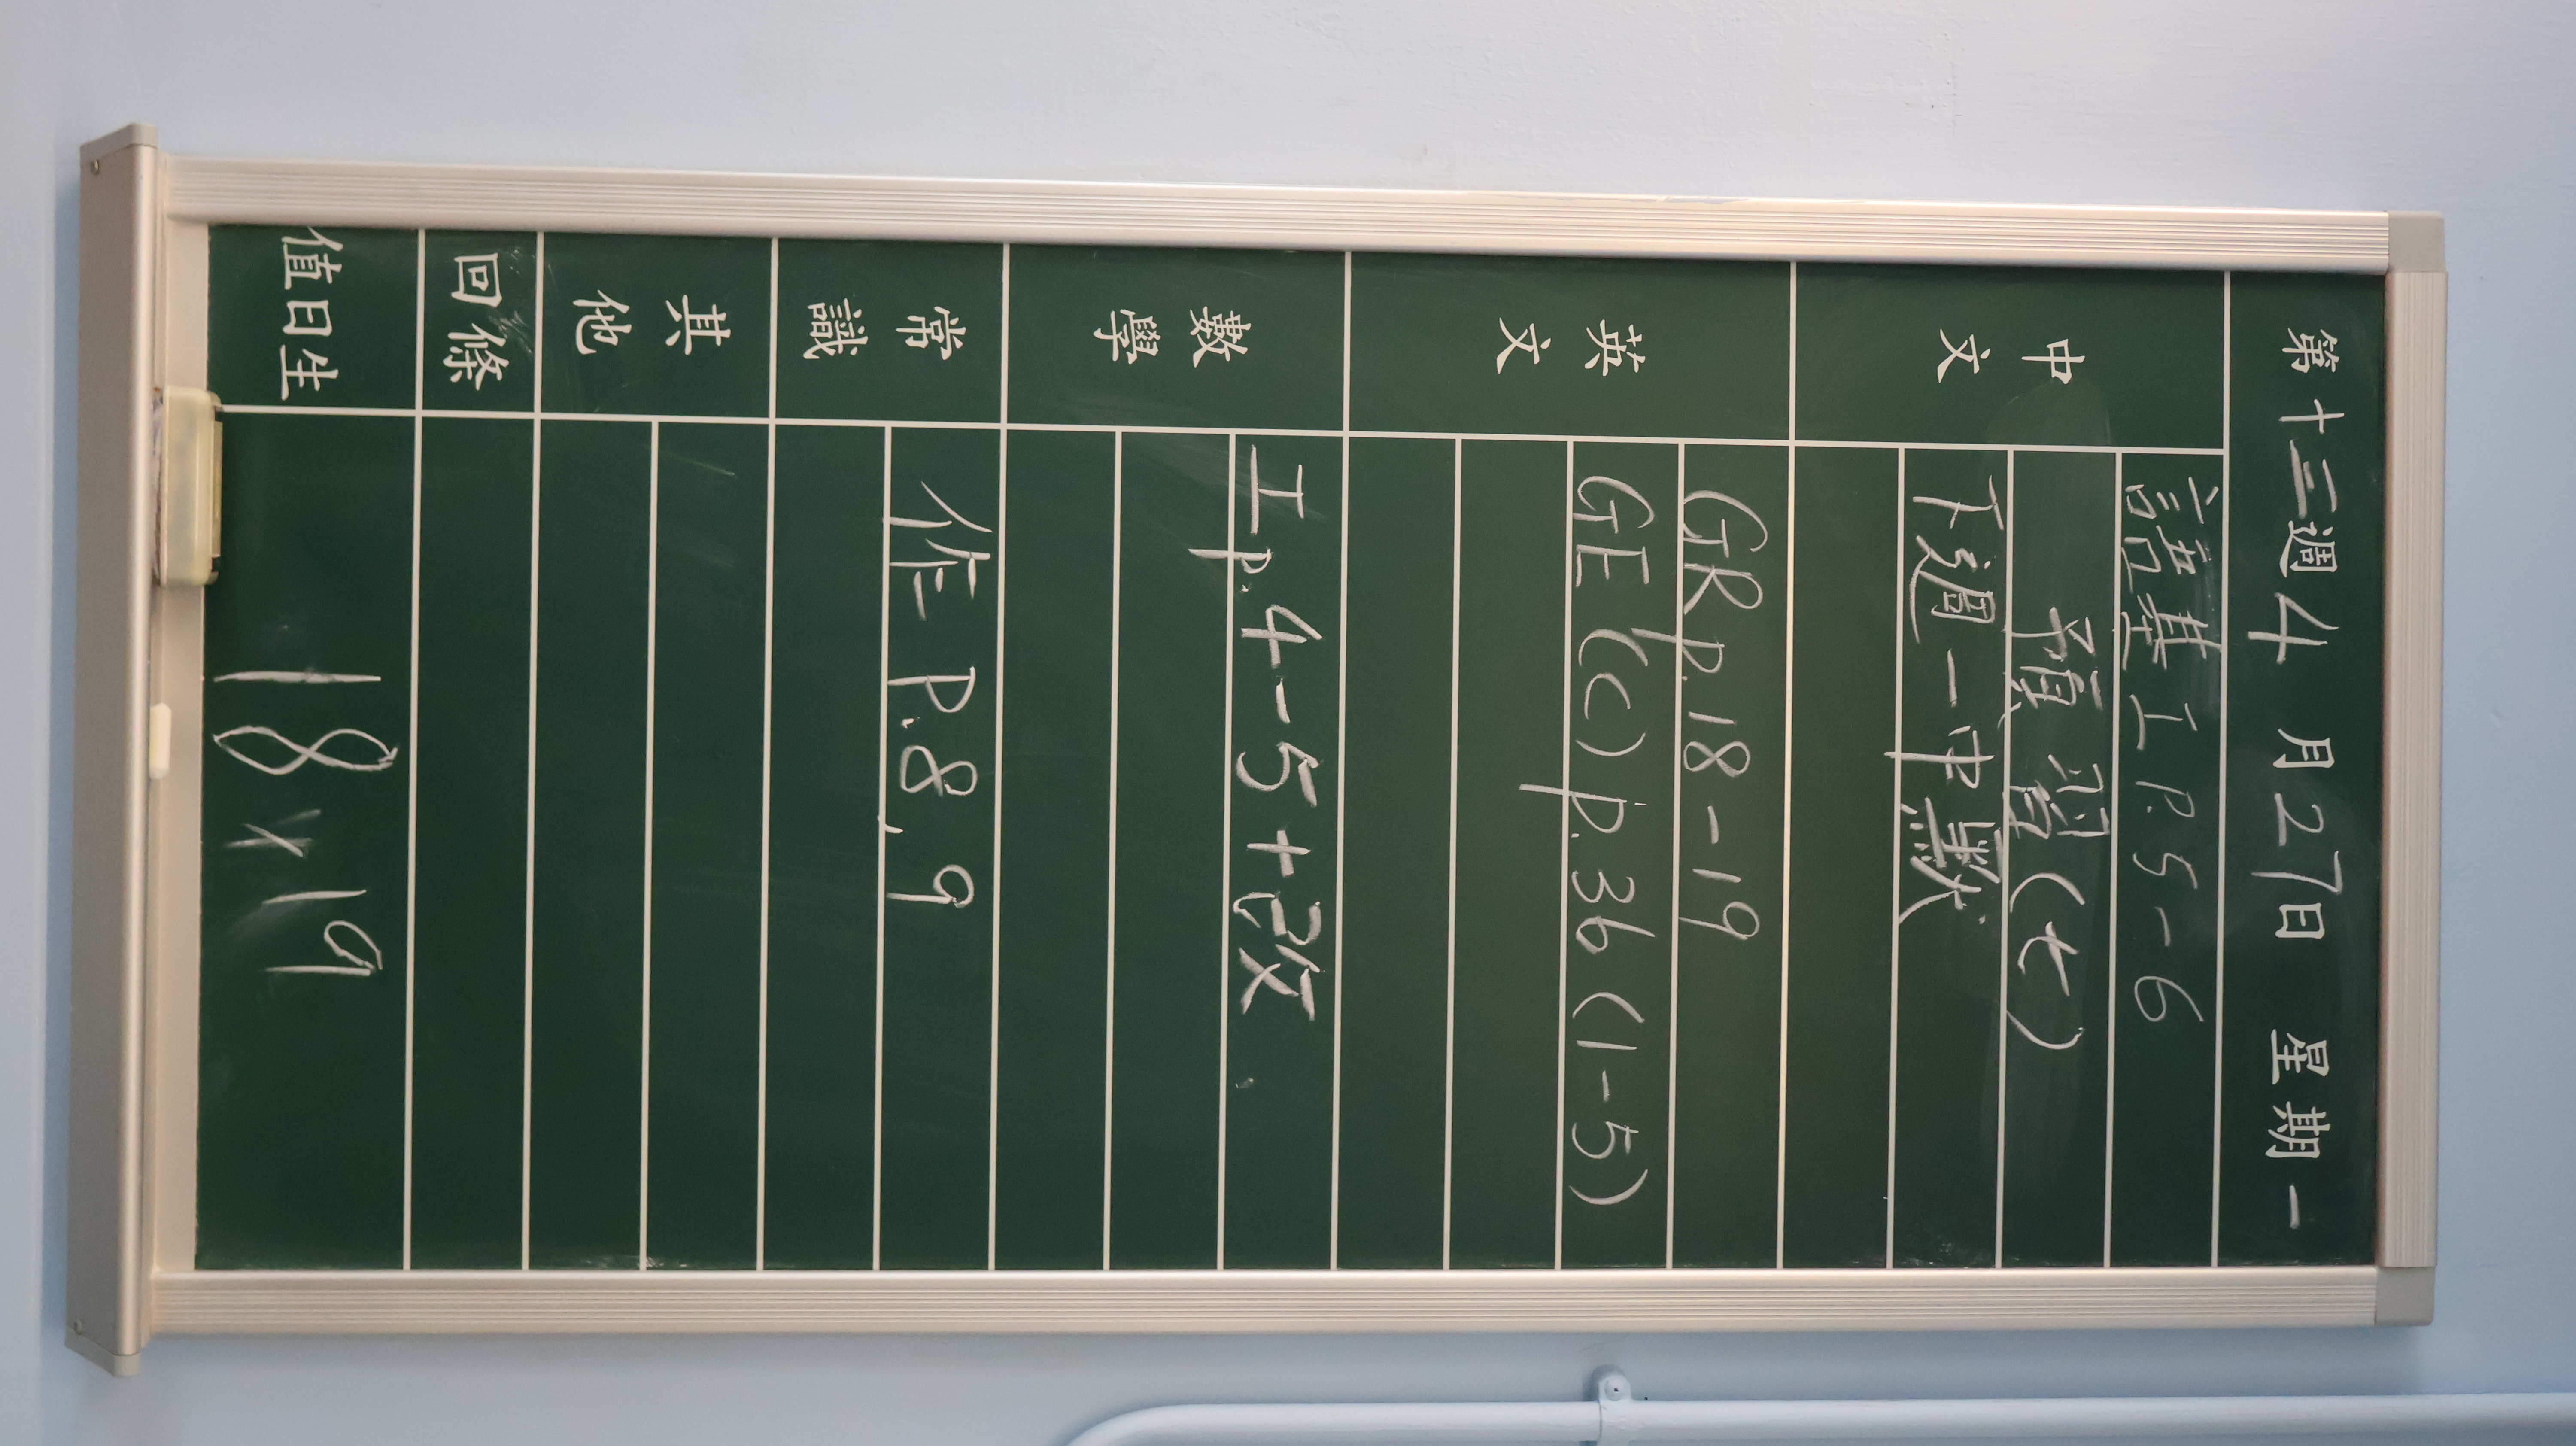 第十三週 4月27日 星期一
中文
語基工 P.5-6
預習(七)
下週一中默
英文
GR p.18-19
GE (c) p.36 (1-5)
數學
工 p.4-5+改
常識
作 P.8,9
其他
回條
值日生
18 x 19